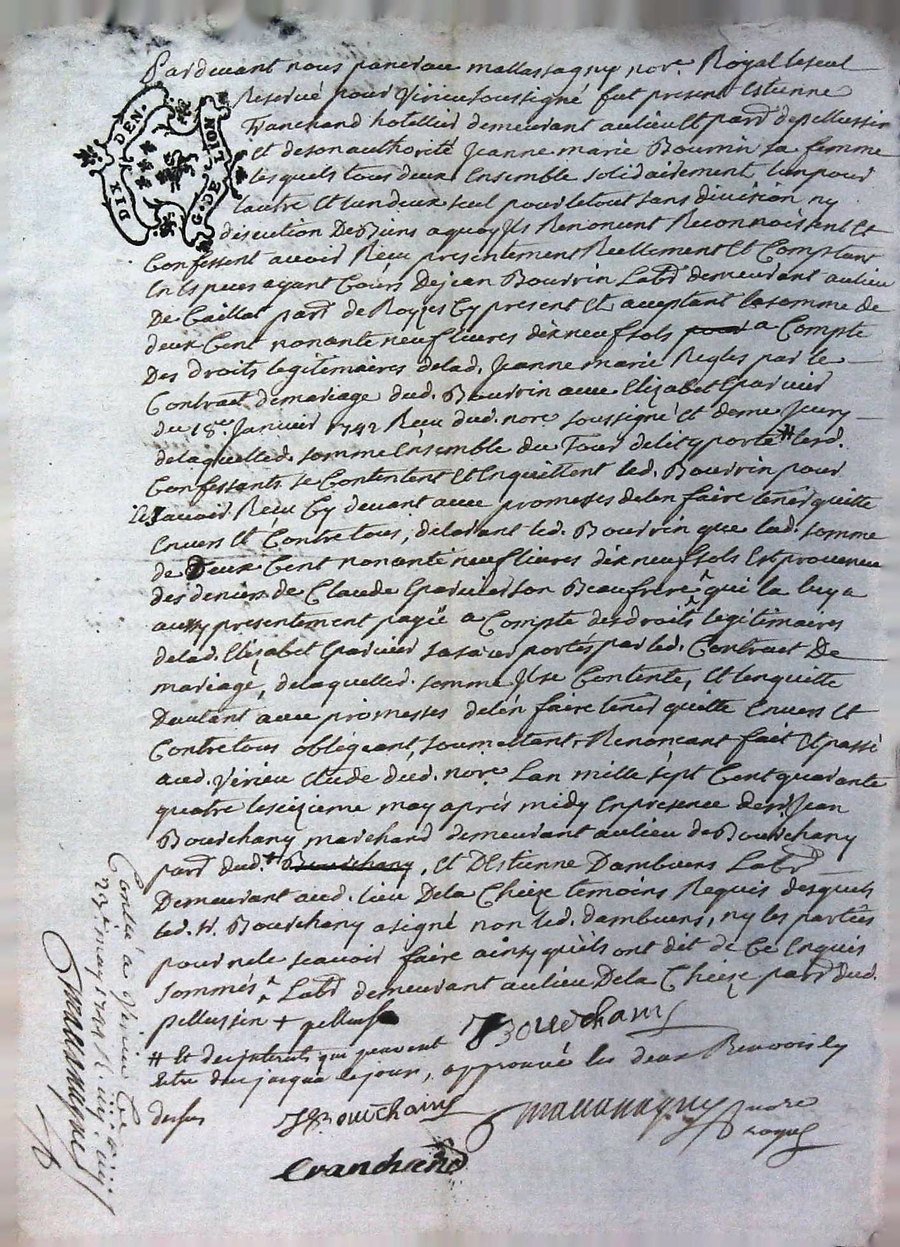 Pardevant nous pancrace mallassagny nore. Royal le seul
Reservé pour Virieu soussigné fut present Estienne
Franchand hotellier demeurant au lieu et parr de pellussin
et de son authorité Jeanne marie Bourrin sa femme
lesquels tous deux Ensemble solidairement lun pour
lautre et lun deux seul pour le tout sans division ny
discution De Biens a quoy Ils Renoncent Reconnoissent Et
Confessent avoir Receu presentement Reellement et Comptant
En Especes ayant Cours De jean Bourrin Labr demeurant au lieu
De Caillat parr de Roizes Cy present Et acceptant la somme de
deux Cent nonante neuf livres dix neuf sols pour a Compte
Des droits legitimaires de lad. Jeanne marie Regles par le
Contrat de mariage dud. Bourrin avec Elizabet
du 18e. Janvier 1742 Receu dud. nore soussigné et
de laquelle d. somme Ensemble du porté # lesd.
Confessants se Contentent et Enquittent led. Bourrin pour
lavoir Receu Cy devant avec promesses de len faire tenir quitte
Envers Et Contre tous, declarant led. Bourrin que lad. somme
de Deux Cent nonante neuf livres dix neuf sols Est provenue
des deniers de Claude son Beaufrere qui la luy a
aussy presentement payée a Compte des droits legitimaires
de lad. Elizabet sa sœur portés par led. Contract De
mariage, de laquelle d. somme Il se Contente, Et lenquitte
Dautant avec promesses de len faire tenir quitte Envers Et
Contre tous obligeant, soumettant, Renoncant fait Et passé
aud. Virieu Etude dud. nore Lan mille sept Cent quarante
quatre le seizieme may après midy En presence de sr. Jean
Bourchany marchand demeurant au lieu de Bourchany
parr dud. Bourchany, Et DEstienne Dambuens Labr
Demeurant aud. lieu De la Chieze temoins Requis desquels
led. sr. Bourchany a signé non led. dambuens, ny les parties
pour ne le scavoir faire ainsy quils ont dit de Ce Enquis
Sommés Labr demeurant au lieu De la Chieze parr dud.
pellussin +
# Et des interets qui peuvent
Estre dus jusqua ce jour, approuvée les deux Renvois Cy
dessus
JBourchany
JBourchany
mallassagny nore
royal
franchand
Conllé a Virieu le
may 1744
mallassagny
DIX DEN.
G. DE